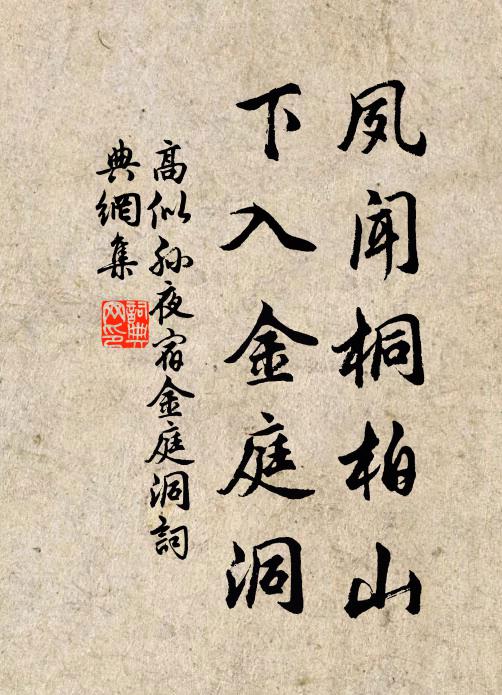 夙聞桐柏山
下入金庭洞
高似孫夜宿金庭洞詞
典網集
詞典網印